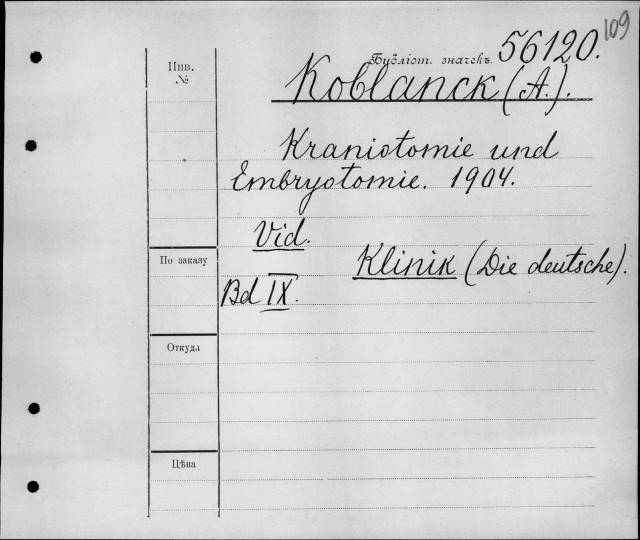 109
Библіот. значекъ. 56120.
Инв.
№
Koblanck (A.).
Kraniotomie und
Embryotomie. 1904.
Vid.
По заказу
Klinik (Die deutsche).
Bd IX.
Откуда
Цѣна